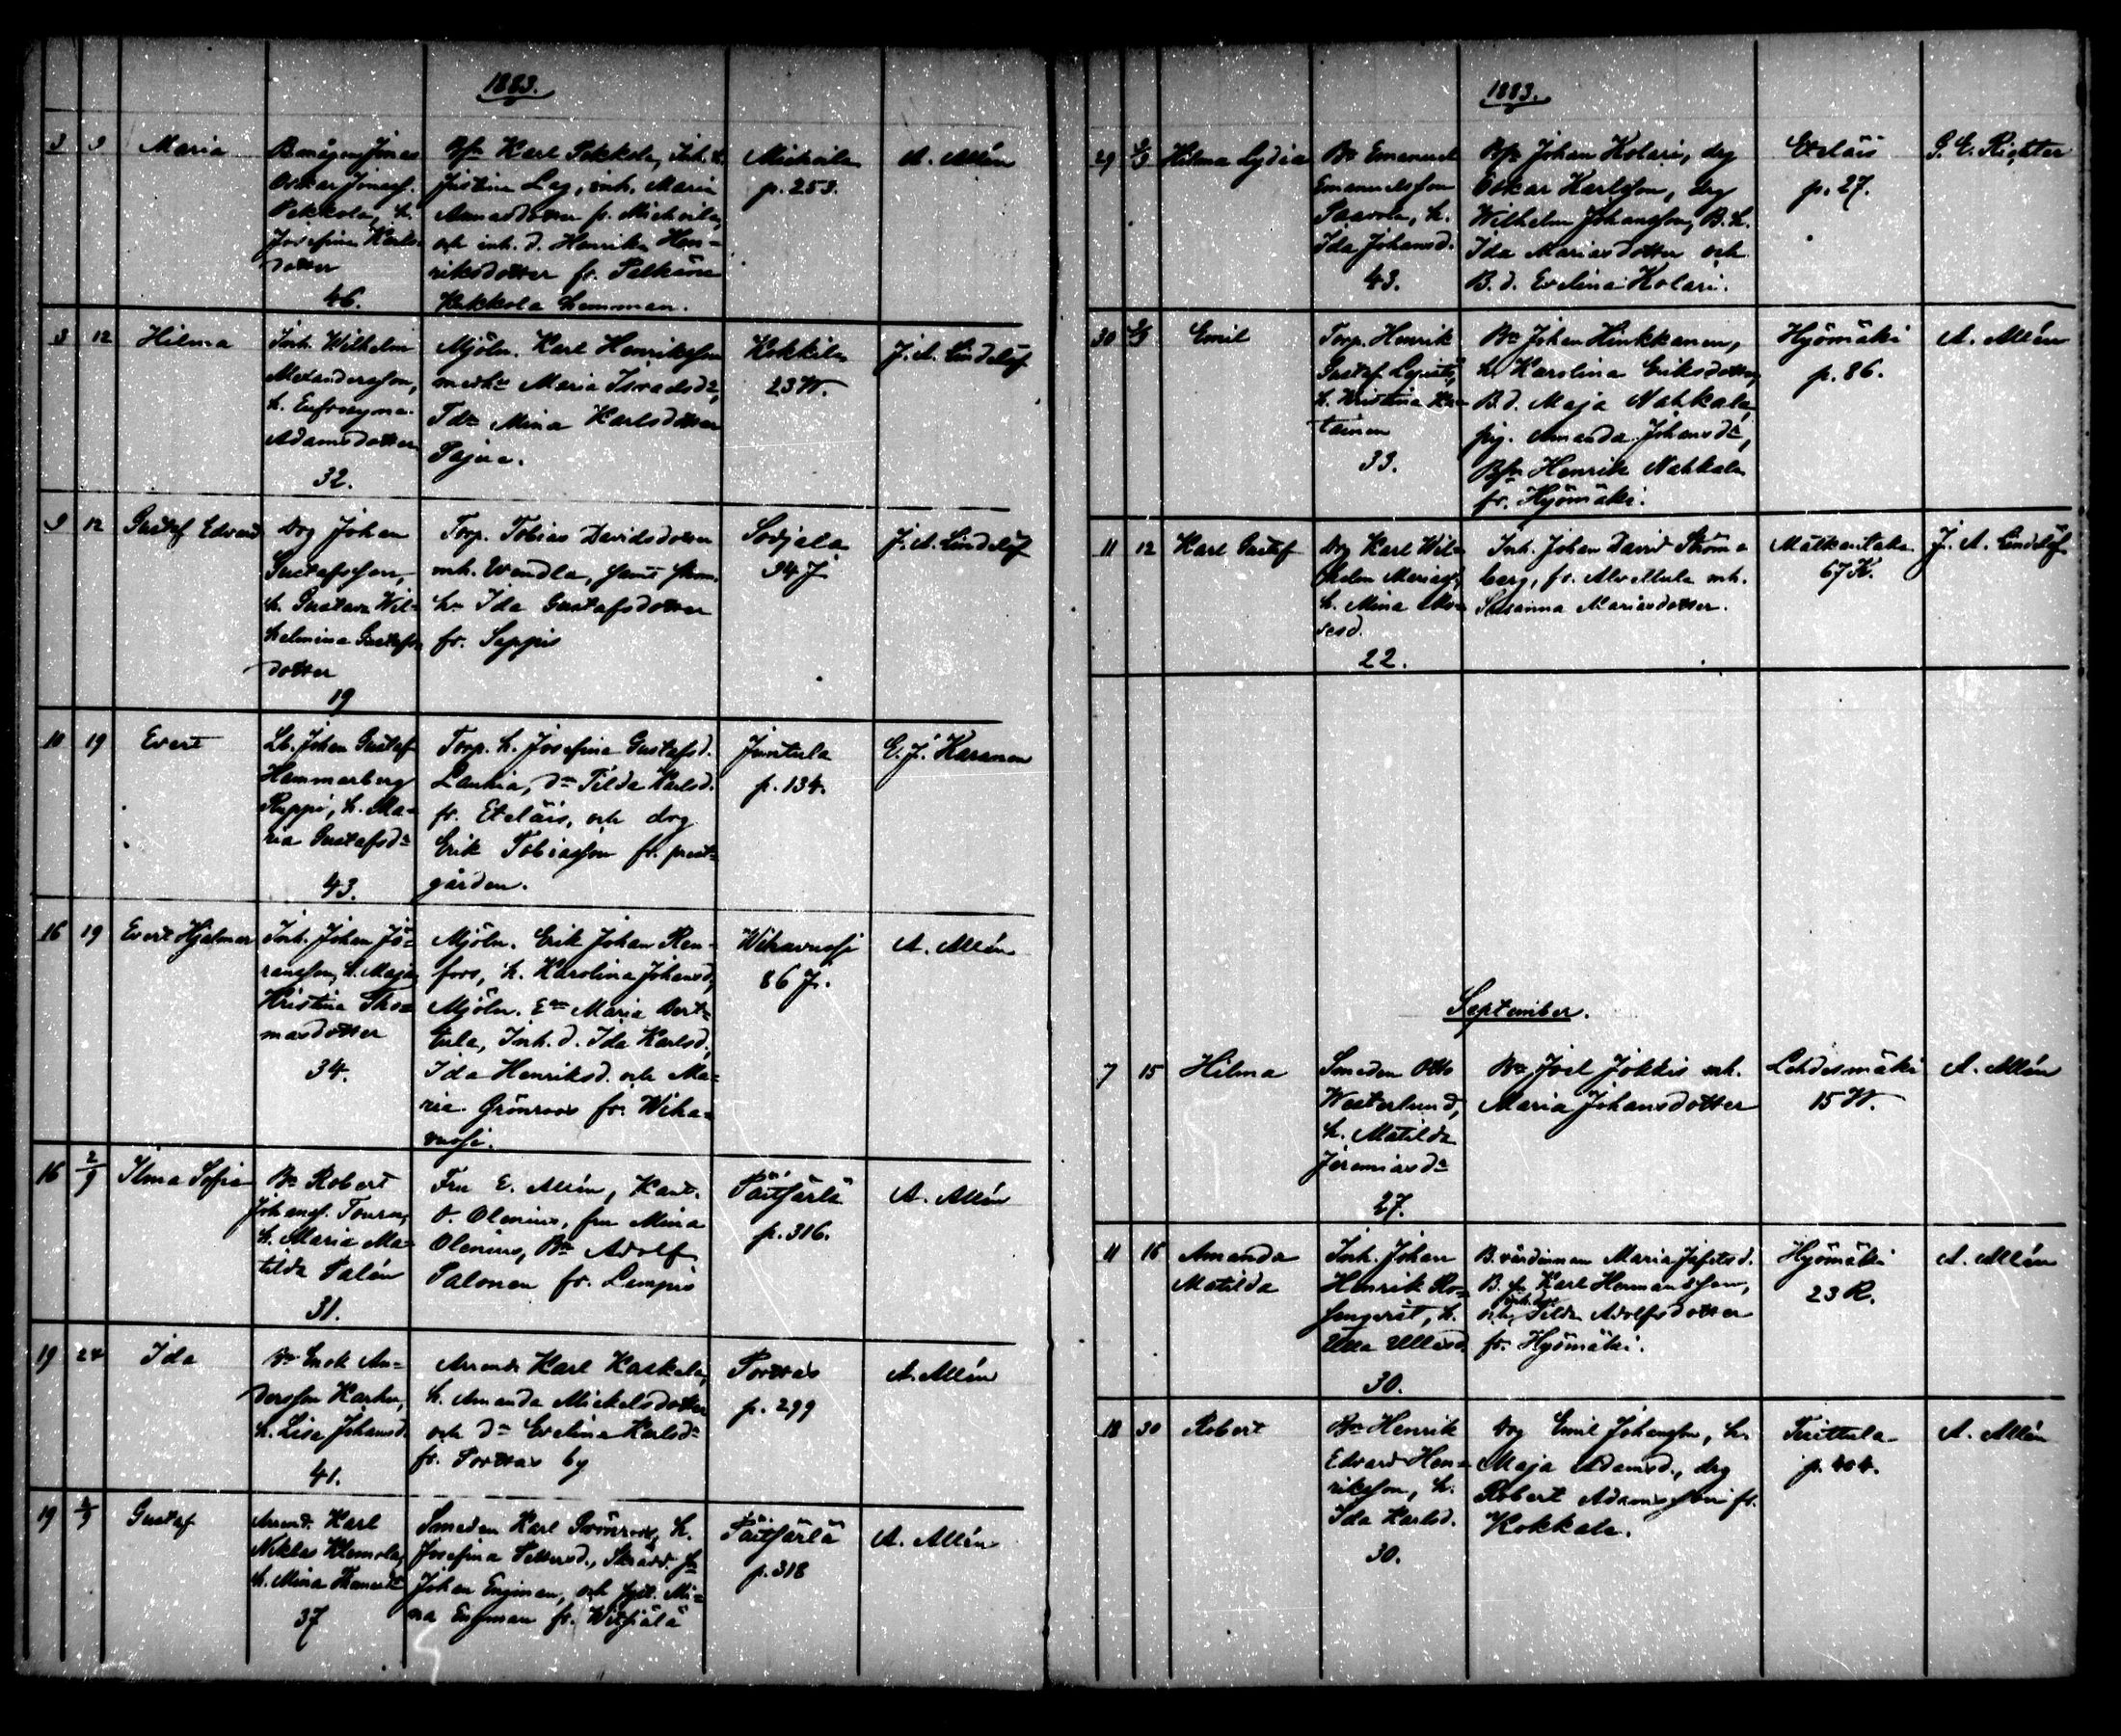 1883.
3 9 Maria
Bmågen Jonas
Oskar Jonasf.
Pekkola, h.
Josefina Karls-
dotter
46.
Bsn Karl Pekkola, Inh. h.
Justina Leg, inh. Maria
Annasdotter fr. Mickoila,
och inh. d. Henrika Hen-
riksdotter fr. Pelkäne
Kukkola hemman.
Mickoila
p. 253.
A. Allén
3 12 Hilma
Inh. Wilhelm
Alexandersson,
h. Eufrosyna
Adamsdotter
32.
Mjöln. Karl Henriksson
med hu Maria Israelsdr,
Tdr Mina Karlsdotter
Pajua.
Kokkila
23 W.
J. A. Lindelöf
9 12 Gustaf Edvard
Drg Johan
Gustafsson,
h. Gustava Wil-
helmina Gustafs-
dotter
19
Torp. Tobias Davidsdotter
mh. Wendla, samt
hu Ida Gustafsdotter
fr. Seppis
Sorjala
94 J
J. A. Lindelöf
10 19 Evert
Lb. Johan Gustaf
Hammarberg
Ruppi, h. Ma-
ria Gustafsdr
43.
Torp. h. Josefina Gustafsd.
Laukia, dr Tilda Karlsd.
fr. Eteläis, och drg
Erik Tobiasson fr. prest-
gården.
Juntula
p. 134.
E. J. Karanen
16 19 Evert Hjalmar
Inh. Johan Jö-
ransson, h. Maja
Kristina Tho-
masdotter
34.
Mjöln. Erik Johan Ren-
fors, h. Karolina Johansd,
Mjöln. Ea Maria Vert-
tula, Inh. d. Ida Karlsd,
Ida Henriksd. och Ma-
ria Grönroos fr. Wiha-
vuosi.
Wihavuosi
86 J.
A. Allén
16 2/9 Ilma Sofia
Bn Robert
Johansf. Touru,
h. Maria Ma-
tilda Palén
31.
Fru E. Allén, Kant.
O. Olenius, fru Mina
Olenius, Bn Adolf
Palonen fr. Lempis
Päitsärlä
p. 316.
A. Allén
19 24 Ida
Bn Enok An-
dersson Karhu,
h. Lisa Johansd.
41.
Arrend. Karl Kaskala,
h. Amanda Mickelsdotter
och dr Evelina Karlsdr
fr. Porras by
Porras
p. 299
A. Allén
19 2/9 Gustaf
Arrend. Karl
Niklas Klemola,
h. Mina Thomasdr
37
Smeden Karl Grönroos, h.
Josefina Pettersd., Skrädd. sn
Johan Engman, och Mi-
na Engman fr. Witsiälä
Päitsärlä
p. 318
A. Allén
1883.
29 2/9 Hilma Lydia
Bn Emanuel
Emanuelsson
Paavola, h.
Ida Johansd.
43.
Bsn Johan Kolari, drg
Oskar Karlsson, drg
Wilhelm Johansson, B. h.
Ida Mariasdotter och
B. d. Evelina Kolari.
Eteläis
p. 27.
G. E. Richter
30 2/9 Emil
Torp. Henrik
Gustaf
h. Kristina
tainen
33.
Bn Johan Hinkkanen,
h. Karolina Eriksdotter,
B. d. Maja Nahkala,
pig. Amanda Johansdr,
Bsn Henrik Nahkala
fr. Hyömäki.
Hyömäki
p. 86.
A. Allén
11 12 Karl Gustaf
Drg Karl Wil-
helm Mariasf.
h. Mina Mo-
sesd.
22.
Inh. Johan David Ström-
berg, fr. Alvettula mh.
Susanna Mariasdotter.
Mälkantaka
67 K.
J. A. Lindelöf
September.
7 15 Hilma
Smeden Otto
Westerlund,
h. Matilda
Jeremiasdr
27.
Bn Joel Jokkis mh.
Maria Johansdotter
Lehdesmäki
15 W.
A. Allén
11 16 Amanda
Matilda
Inh. Johan
Henrik Ro-
senqvist, h.
Ulla Ullasd.
30.
B. värdinnan Maria Jafetsd.
B. sn Karl Hermansson,
och Tilda Adolfsdotter
fr. Hyömäki.
Hyömäki
23 R.
A. Allén
18 30 Robert
Bn Henrik
Edvard Hen-
riksson, h.
Ida Karlsd.
30.
Drg Emil Johansson, h.
Maja Adamsd., drg
Robert Adamsson fr.
Kokkala.
Tuittula
p. 404.
A. Allén